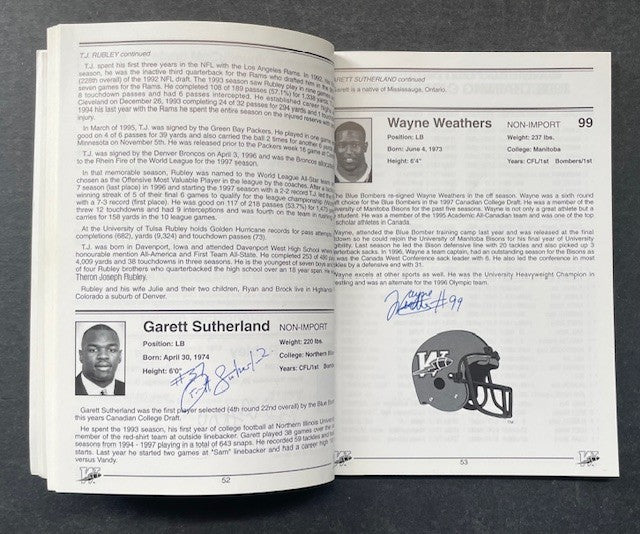 T.J. RUBLEY continued
T.J. spent his first three years in the NFL with the Los Angeles Rams. In 1992,
season, he was the inactive third quarterback for the Rams who drafted him in the
(228th overall) of the 1992 NFL draft. The 1993 season saw Rubley play in nine
seven games for the Rams. He completed 108 of 189 passes (57.1%) for 1,338 yards,
8 touchdown passes and had 6 passes intercepted. He established career
Cleveland on December 26, 1993 completing 24 of 32 passes for 294 yards and
1994 his last year with the Rams he spent the entire season on the injured reserve
injury.
In March of 1995, T.J. was signed by the Green Bay Packers. He played in one
good on 4 of 6 passes for 39 yards and also carried the ball 2 times for another 6
Minnesota on November 5th. He was released prior to the Packers week 16 game
T.J. was signed by the Denver Broncos on April 3, 1996 and was the Broncos
to the Rhein Fire of the World League for the 1997 season.
In that memorable season, Rubley was named to the World League All-Star team
chosen as the Offensive Most Valuable Player in the league by the coaches. After a
7 season (last place) in 1996 and starting the 1997 season with a 2-2 record T.J. led
winning streak of 5 of their final 6 games to qualify for the league championship
with a 7-3 record (first place). He was good on 117 of 218 passes (53.7%) for 1,475
threw 12 touchdowns and had 9 interceptions and was fourth on the team in rushing
carries for 158 yards in the 10 league games.
At the University of Tulsa Rubley holds Golden Hurricane records for pass attempts
completions (682), yards (9,324) and touchdown passes (73).
T.J. was born in Davenport, Iowa and attended Davenport West High School
honourable mention All-America and First Team All-State. He completed 253 of 490
4,009 yards and 38 touchdowns in three seasons. He is the youngest of seven born
of four Rubley brothers who quarterbacked the high school over an 18 year span. He
Theron Joseph Rubley.
Rubley and his wife Julie and their two children, Ryan and Brock live in Highlands
Colorado a suburb of Denver.
Garett Sutherland NON-IMPORT
Position: LB Weight: 220 lbs.
Born: April 30, 1974 College: Northern Illinois
Height: 6'0" Years: CFL/1st Bombers
#37
Garett Sutherland was the first player selected (4th round 22nd overall) by the Blue
this years Canadian College Draft.
He spent the 1993 season, his first year of college football at Northern Illinois University
member of the red-shirt team at outside linebacker. Garett played 38 games over the
seasons from 1994 - 1997 playing in a total of 643 snaps. He recorded 59 tackles and
starts. Last year he started two games at "Sam" linebacker and had a career high
versus Vandy.
52
GARETT SUTHERLAND continued
Garett is a native of Mississauga, Ontario.
Wayne Weathers NON-IMPORT 99
Position: LB Weight: 237 lbs.
Born: June 4, 1973 College: Manitoba
Height: 6'4" Years: CFL/1st Bombers/1st
The Blue Bombers re-signed Wayne Weathers in the off season. Wayne was a sixth
round draft choice for the Blue Bombers in the 1997 Canadian College Draft. He was a member of the
University of Manitoba Bisons for the past five seasons. Wayne is not only a great athlete but a
student. He was a member of the 1995 Academic All-Canadian team and was one of the top
scholar athletes in Canada.
Wayne, attended the Blue Bomber training camp last year and was released at the final
cutdown so he could rejoin the University of Manitoba Bisons for his final year of University
eligibility. Last season he led the Bison defensive line with 20 tackles and also picked up 3
quarterback sacks. In 1996, Wayne a team captain, had an outstanding season for the Bisons as
was the Canada West Conference sack leader with 6. He also led the conference in most
tackles by a defensive end with 31.
Wayne excels at other sports as well. He was the University Heavyweight Champion in
wrestling and was an alternate for the 1996 Olympic team.
Wayne
#99
W
TM
53